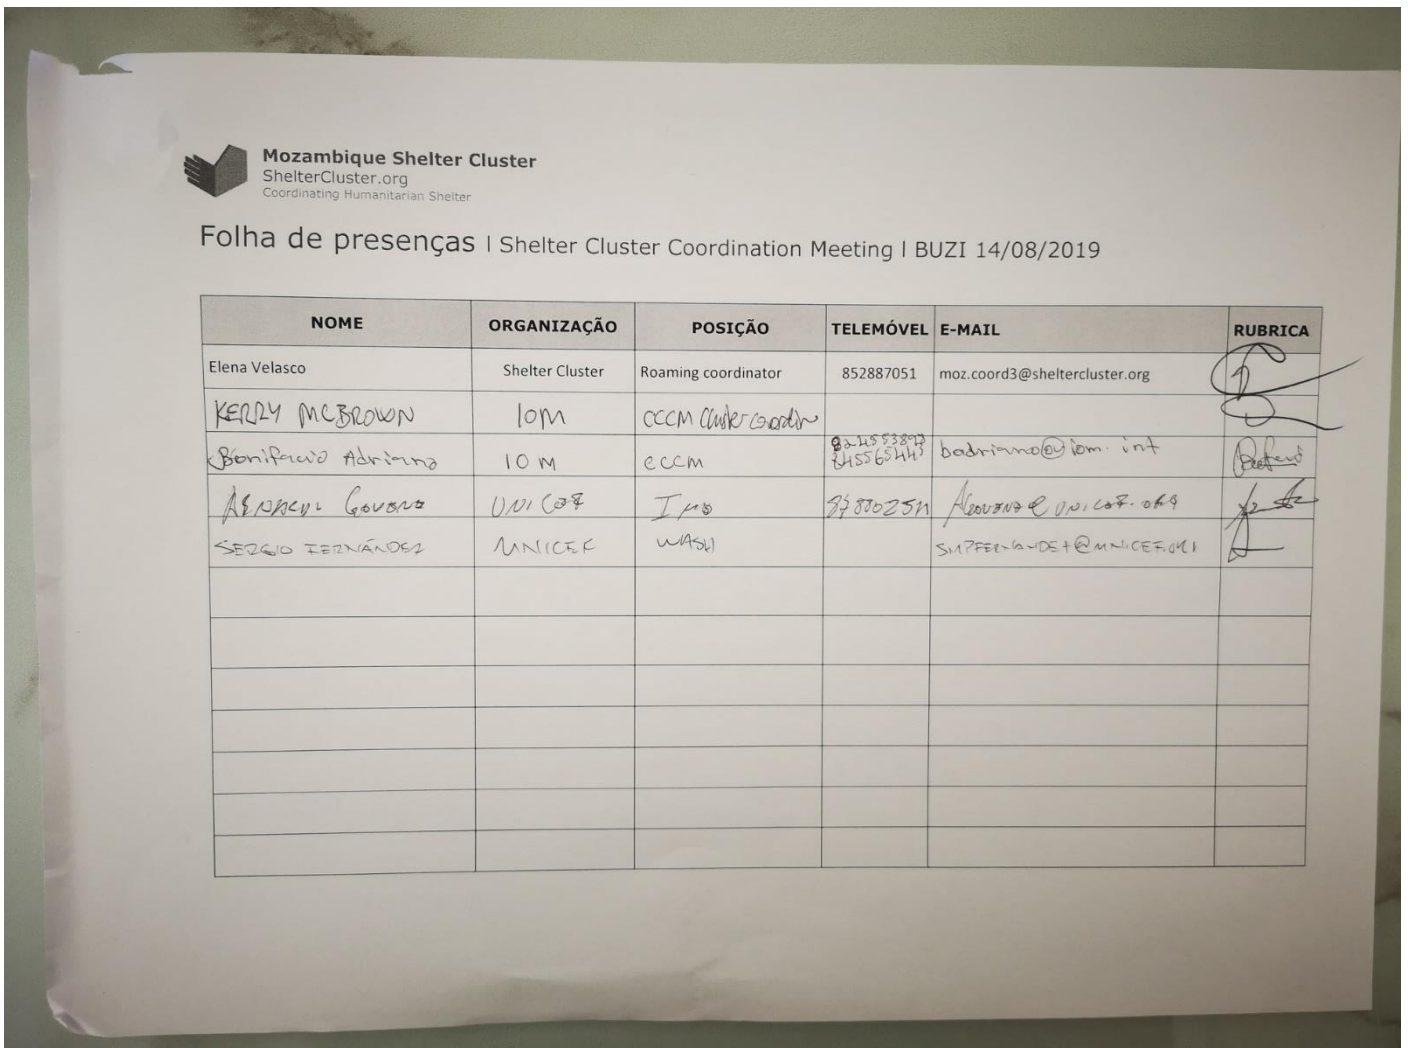 Mozambique Shelter Cluster
ShelterCluster.org
Coordinating Humanitarian Shelter
Folha de presenças | Shelter Cluster Coordination Meeting | BUZI 14/08/2019
NOME ORGANIZAÇÃO POSIÇÃO TELEMÓVEL E-MAIL RUBRICA
Elena Velasco Shelter Cluster Roaming coordinator 852887051 moz.coord3@sheltercluster.org
KERRY MCBROWN IOM CCCM Cluster Coordin
Bonifacio Adriano IOM CCCM badriano@iom.int
Govene UNICEF
SERGIO FERNÁNDEZ UNICEF WASH